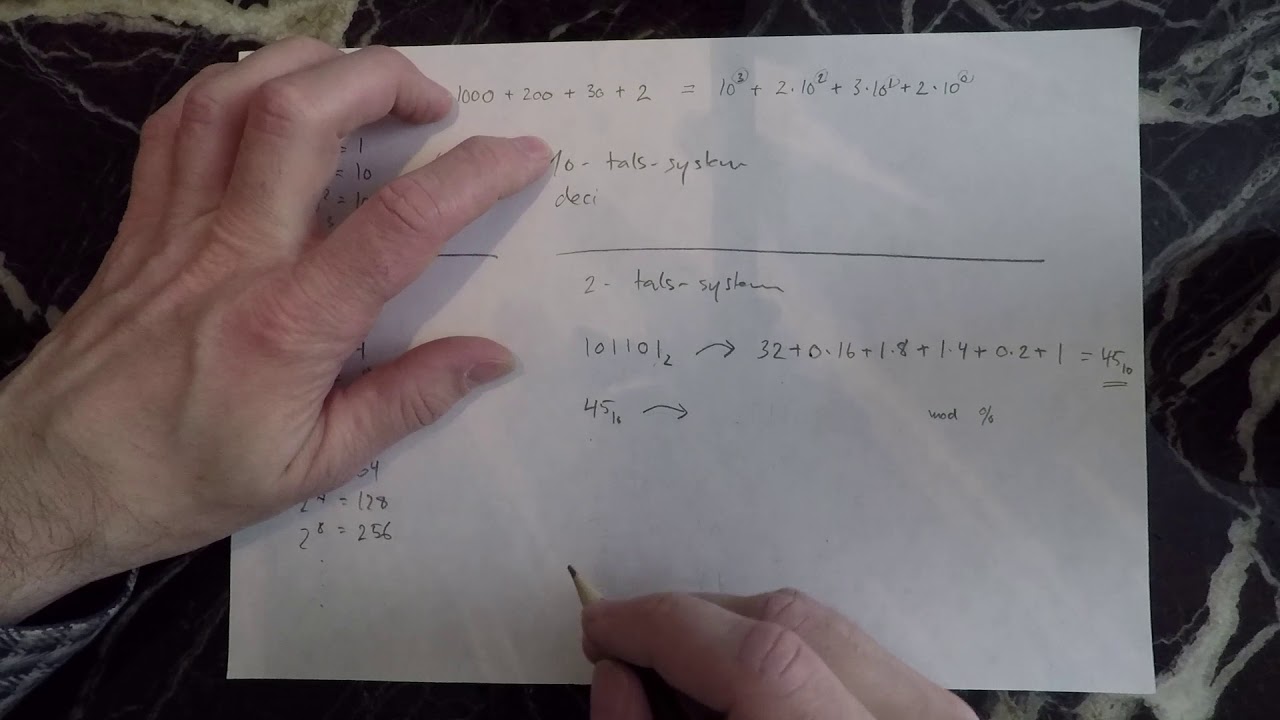 1000 + 200 + 30 + 2 = 10³ + 2·10² + 3·10¹ + 2·10⁰
= 1
= 10
10-tals-system
deci
2-tals-system
101101₂ → 32+0·16+1·8+1·4+0·2+1 = 45₁₀
45₁₀ → mod %
= 128
2⁸ = 256